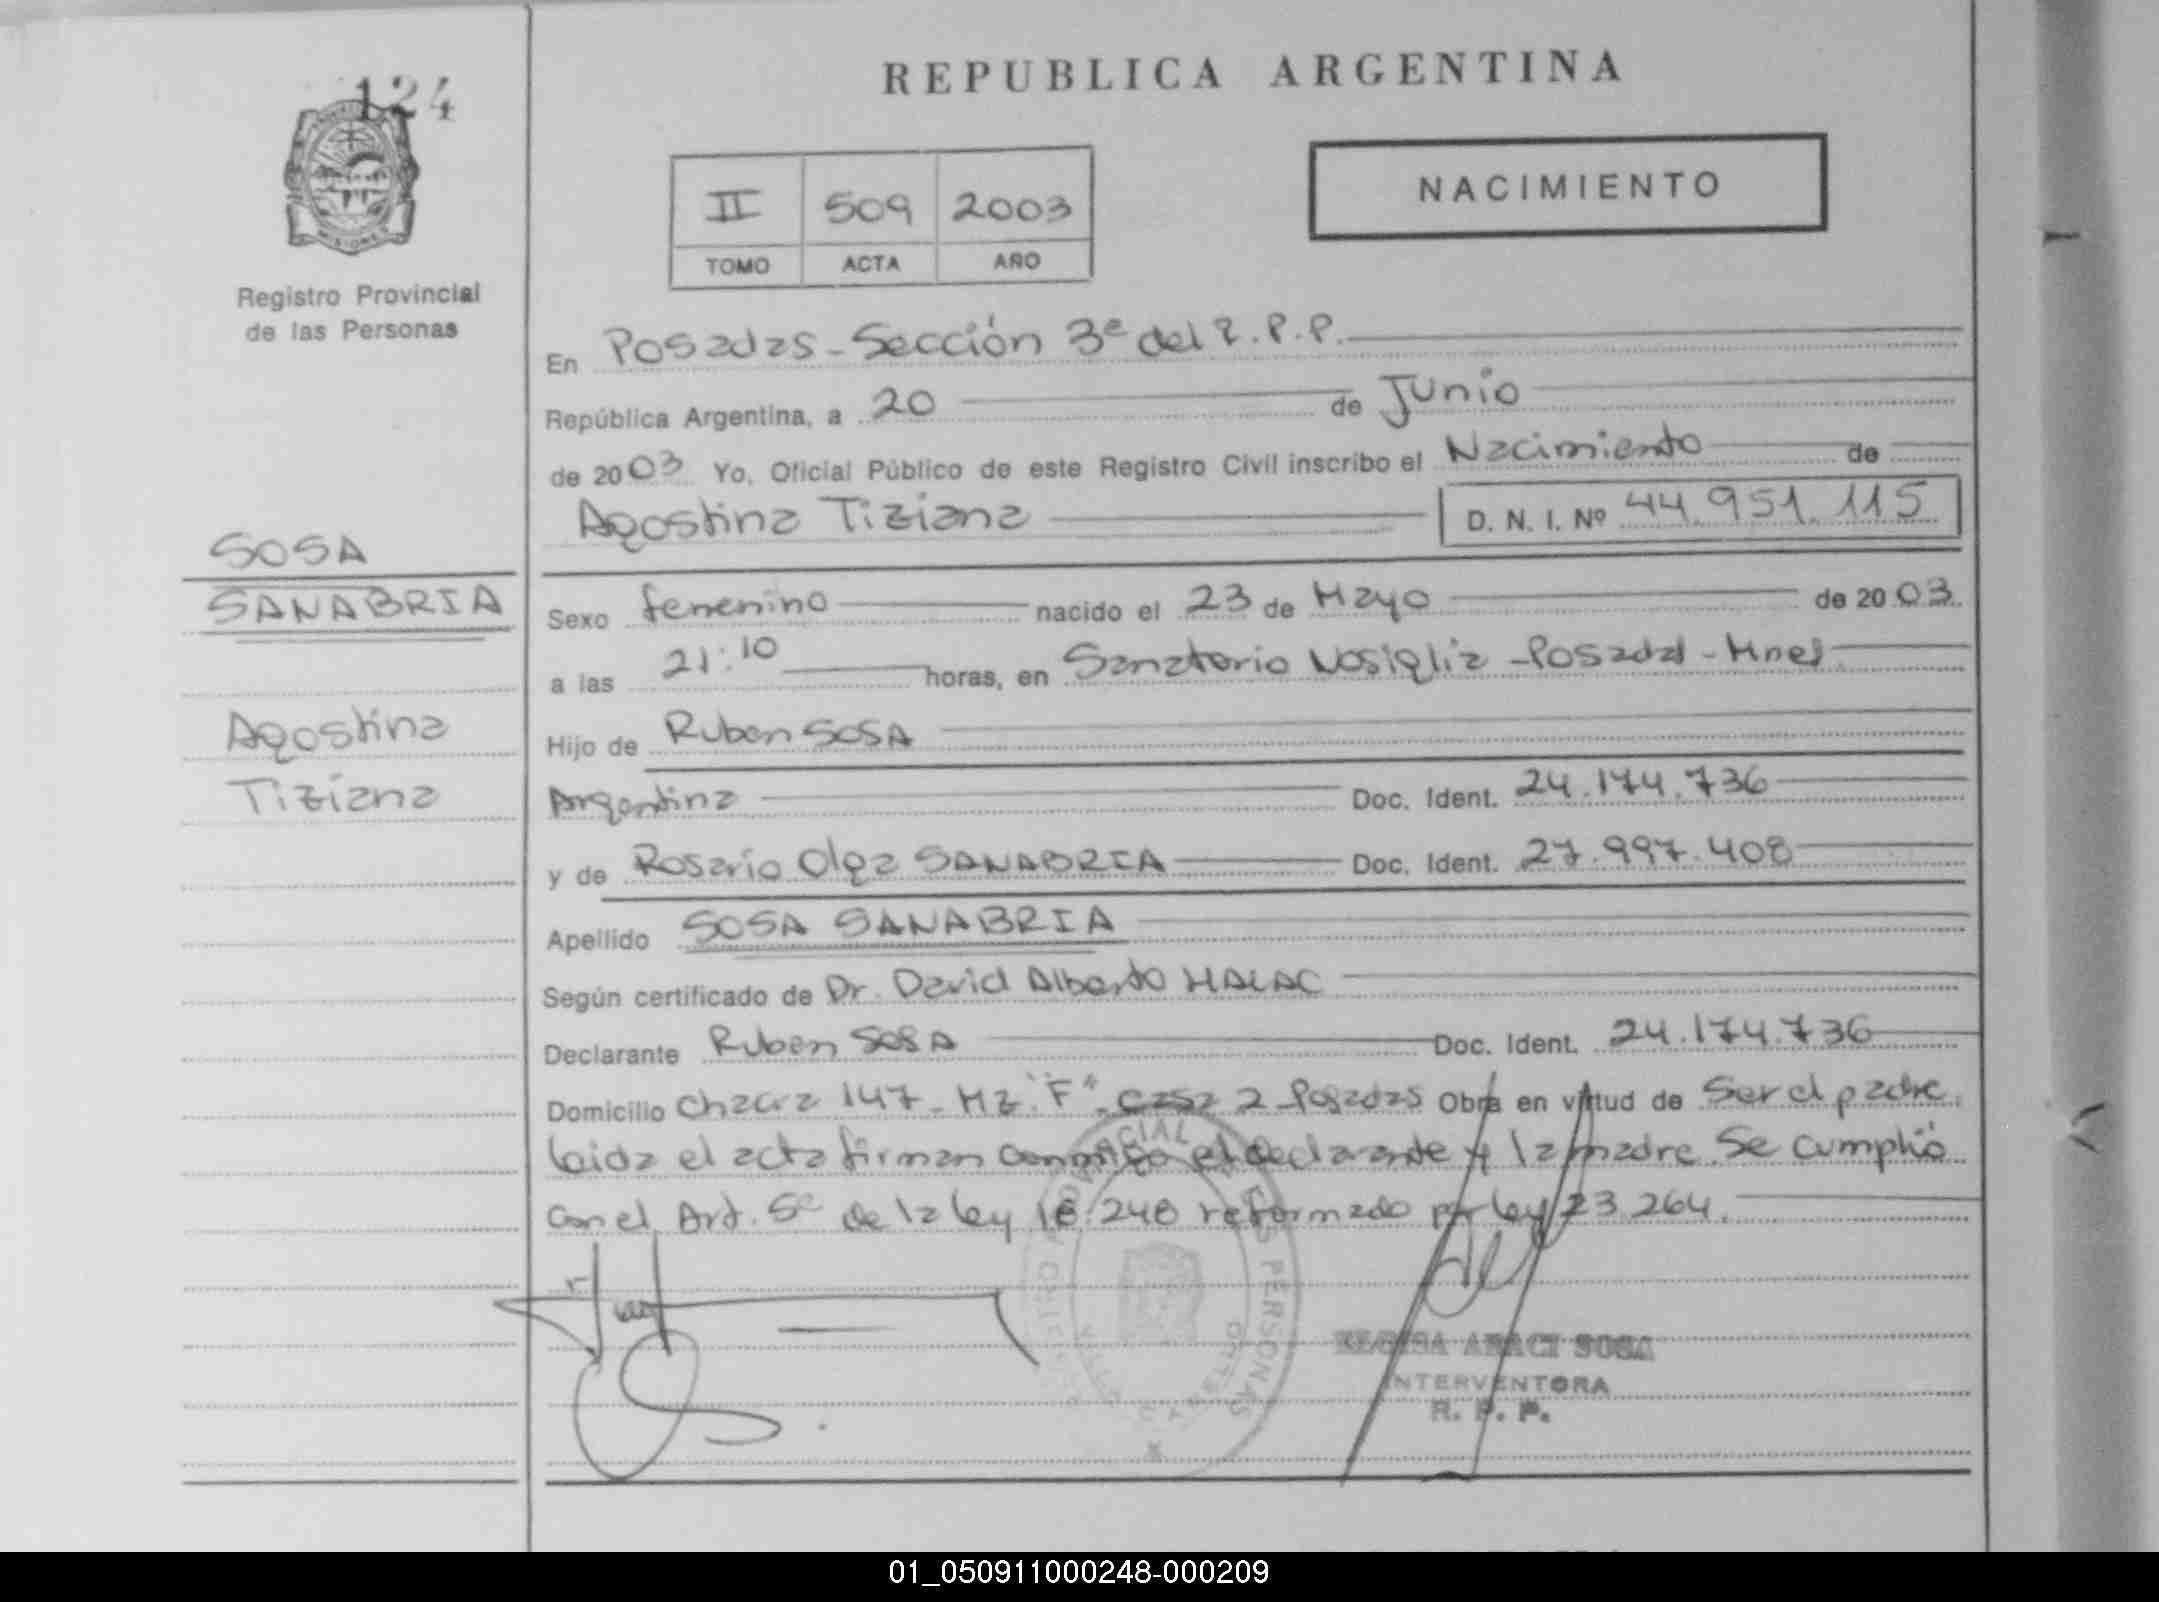 124
MISIONES
Registro Provincial
de las Personas
SOSA
SANABRIA
Agostina
Tiziana
REPUBLICA ARGENTINA
II 509 2003
TOMO ACTA AÑO
NACIMIENTO
En Posadas - Sección 3ª del R.P.P.
República Argentina, a 20 de Junio
de 2003 Yo, Oficial Público de este Registro Civil inscribo el Nacimiento de
Agostina Tiziana D. N. I. Nº 44.951.115
Sexo femenino nacido el 23 de Mayo de 2003
a las 21:10 horas, en Sanatorio Nosiglia - Posadas - Mnes.
Hijo de Ruben SOSA
Argentina Doc. Ident. 24.174.736
y de Rosario Olga SANABRIA Doc. Ident. 27.997.408
Apellido SOSA SANABRIA
Según certificado de Dr. David Alberto HALAC
Declarante Ruben SOSA Doc. Ident. 24.174.736
Domicilio Chacra 147 - Mz "F" casa 2 Posadas Obra en virtud de Ser el padre.
leida el acta firman conmigo el declarante y la madre. Se cumplió
con el Art. 5º de la ley 18.248 reformado por ley 23.264.
ARACI SOSA
INTERVENTORA
R. P. P.
01_050911000248-000209